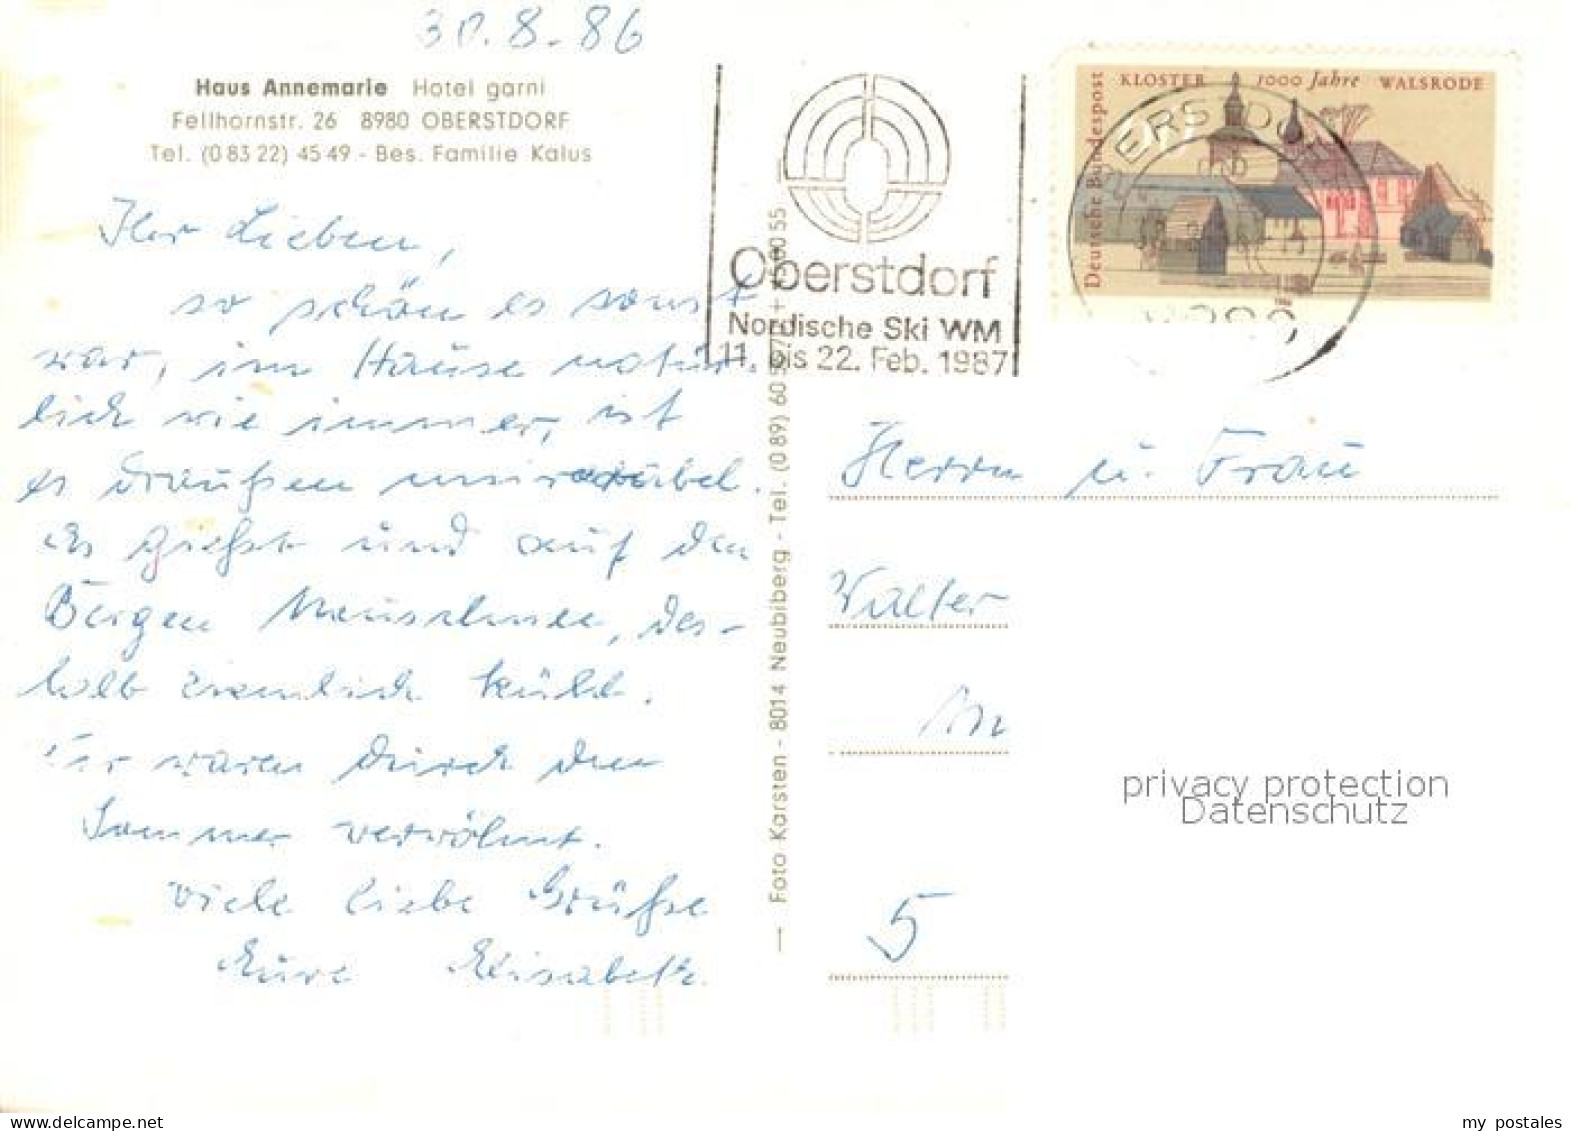 30.8.86
Haus Annemarie Hotel garni
Fellhornstr. 26 8980 OBERSTDORF
Tel. (0 83 22) 45 49 - Bes. Familie Kalus
Ihr Lieben,
so schön es sonst
war, im Hause natür-
lich wie immer, ist
es draußen miserabel.
Es gießt und auf den
Bergen Neuschnee, des-
halb ziemlich kühl.
Wir waren durch den
Sommer verwöhnt.
Viele liebe Grüße
Eure Elisabeth.
— Foto Karsten - 8014 Neubiberg - Tel. (0 89) 60 55
Oberstdorf
Nordische Ski WM
11. bis 22. Feb. 1987
Deutsche Bundespost
KLOSTER 1000 Jahre WALSRODE
OBERSTDORF
Herrn u. Frau
Walter
5
privacy protection
Datenschutz
my postales